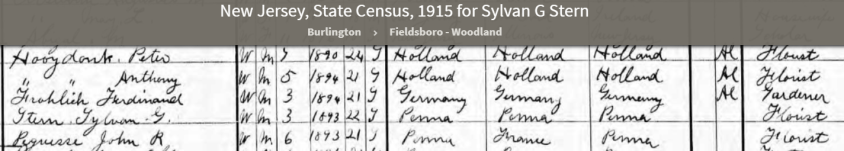 New Jersey, State Census, 1915 for Sylvan G Stern
Burlington › Fieldsboro - Woodland
Hooydonk. Peter W M 7 1890 24 S Holland Holland Holland Al Florist
" " Anthony W M 5 1894 21 S Holland Holland Holland Al Florist
Frohlich Ferdinand W M 3 1894 21 S Germany Germany Germany Al Gardener
Stern. Sylvan G. W M 3 1893 22 S Penna Penna Penna Florist
John R W M 6 1893 21 S Penna France Penna Florist